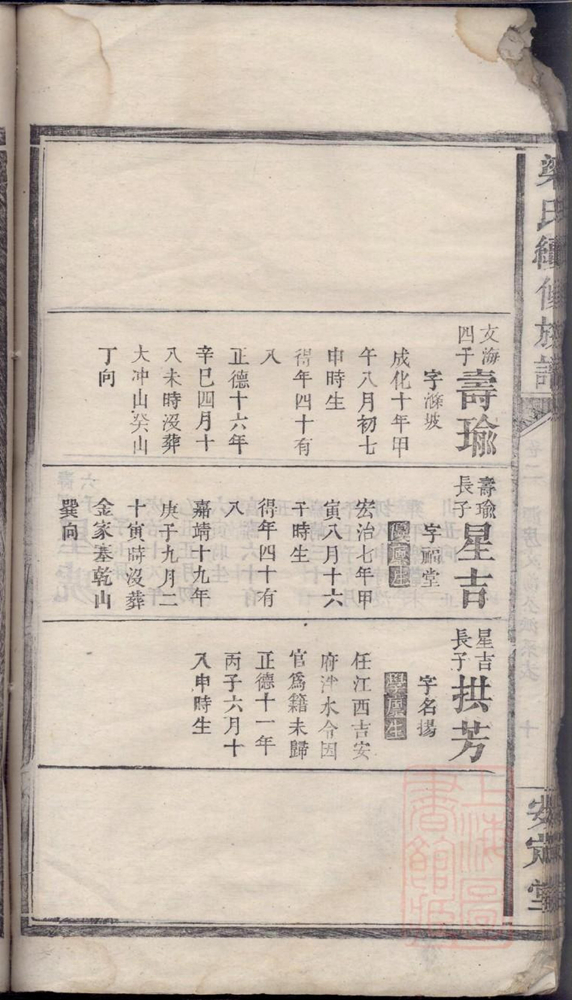 氏續修族譜
文海
四子
壽瑜
字滌坡
成化十年甲
午八月初七
申時生
得年四十有
八
正德十六年
辛巳四月十
八未時沒葬
大冲山癸山
丁向
壽瑜
長子
星吉
字嗣堂
宏治七年甲
寅八月十六
午時生
得年四十有
八
嘉靖十九年
庚子九月二
十寅時沒葬
金家基乾山
巽向
星吉
長子
拱芳
字名揚
學廩生
任江西吉安
府泮水令因
官爲籍未歸
正德十一年
丙子六月十
八申時生
安定堂
上海圖
書館藏